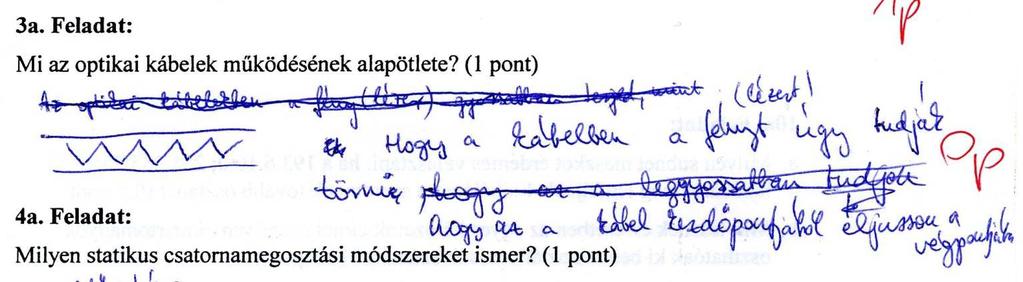 1p
3a. Feladat:
Mi az optikai kábelek működésének alapötlete? (1 pont)
Az optikai kábelekben a fény (lézer) gyorsabban terjed, mint (lézert)
Hogy a kábelben a fényt úgy tudják
0p
törni, hogy az a leggyorsabban tudjon
hogy az a kábel kezdőpontjából eljusson a végpontjába
4a. Feladat:
Milyen statikus csatornamegosztási módszereket ismer? (1 pont)